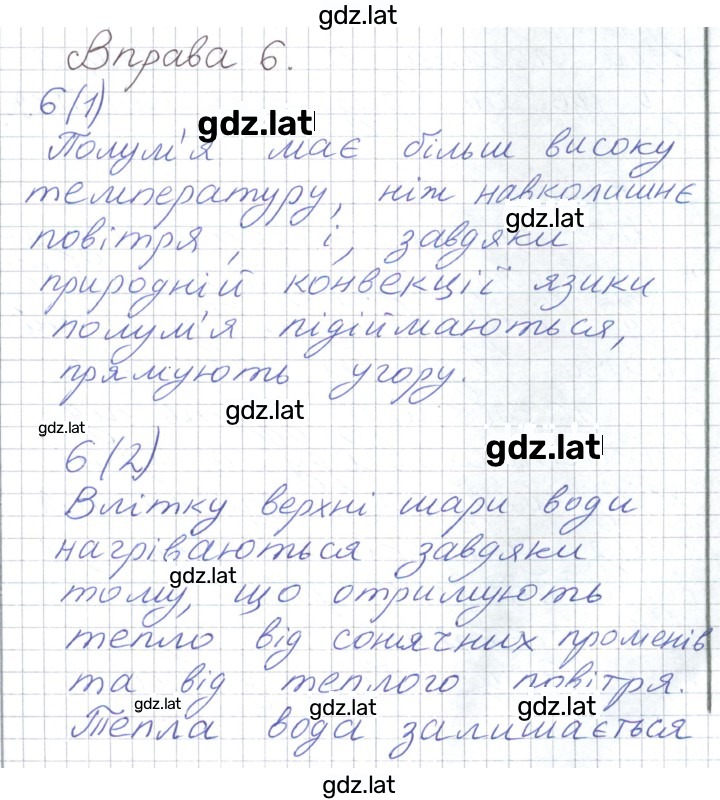 gdz.lat
Вправа 6.
6(1)
gdz.lat
Полум'я має більш високу
температуру, ніж навколишнє
gdz.lat
повітря, і, завдяки
природній конвекції язики
полум'я підіймаються,
прямують угору.
gdz.lat
gdz.lat
gdz.lat
6(2)
Влітку верхні шари води
нагріваються завдяки
gdz.lat
тому, що отримують
тепло від сонячних променів
та від теплого повітря.
gdz.lat gdz.lat gdz.lat
Тепла вода залишається
gdz.lat